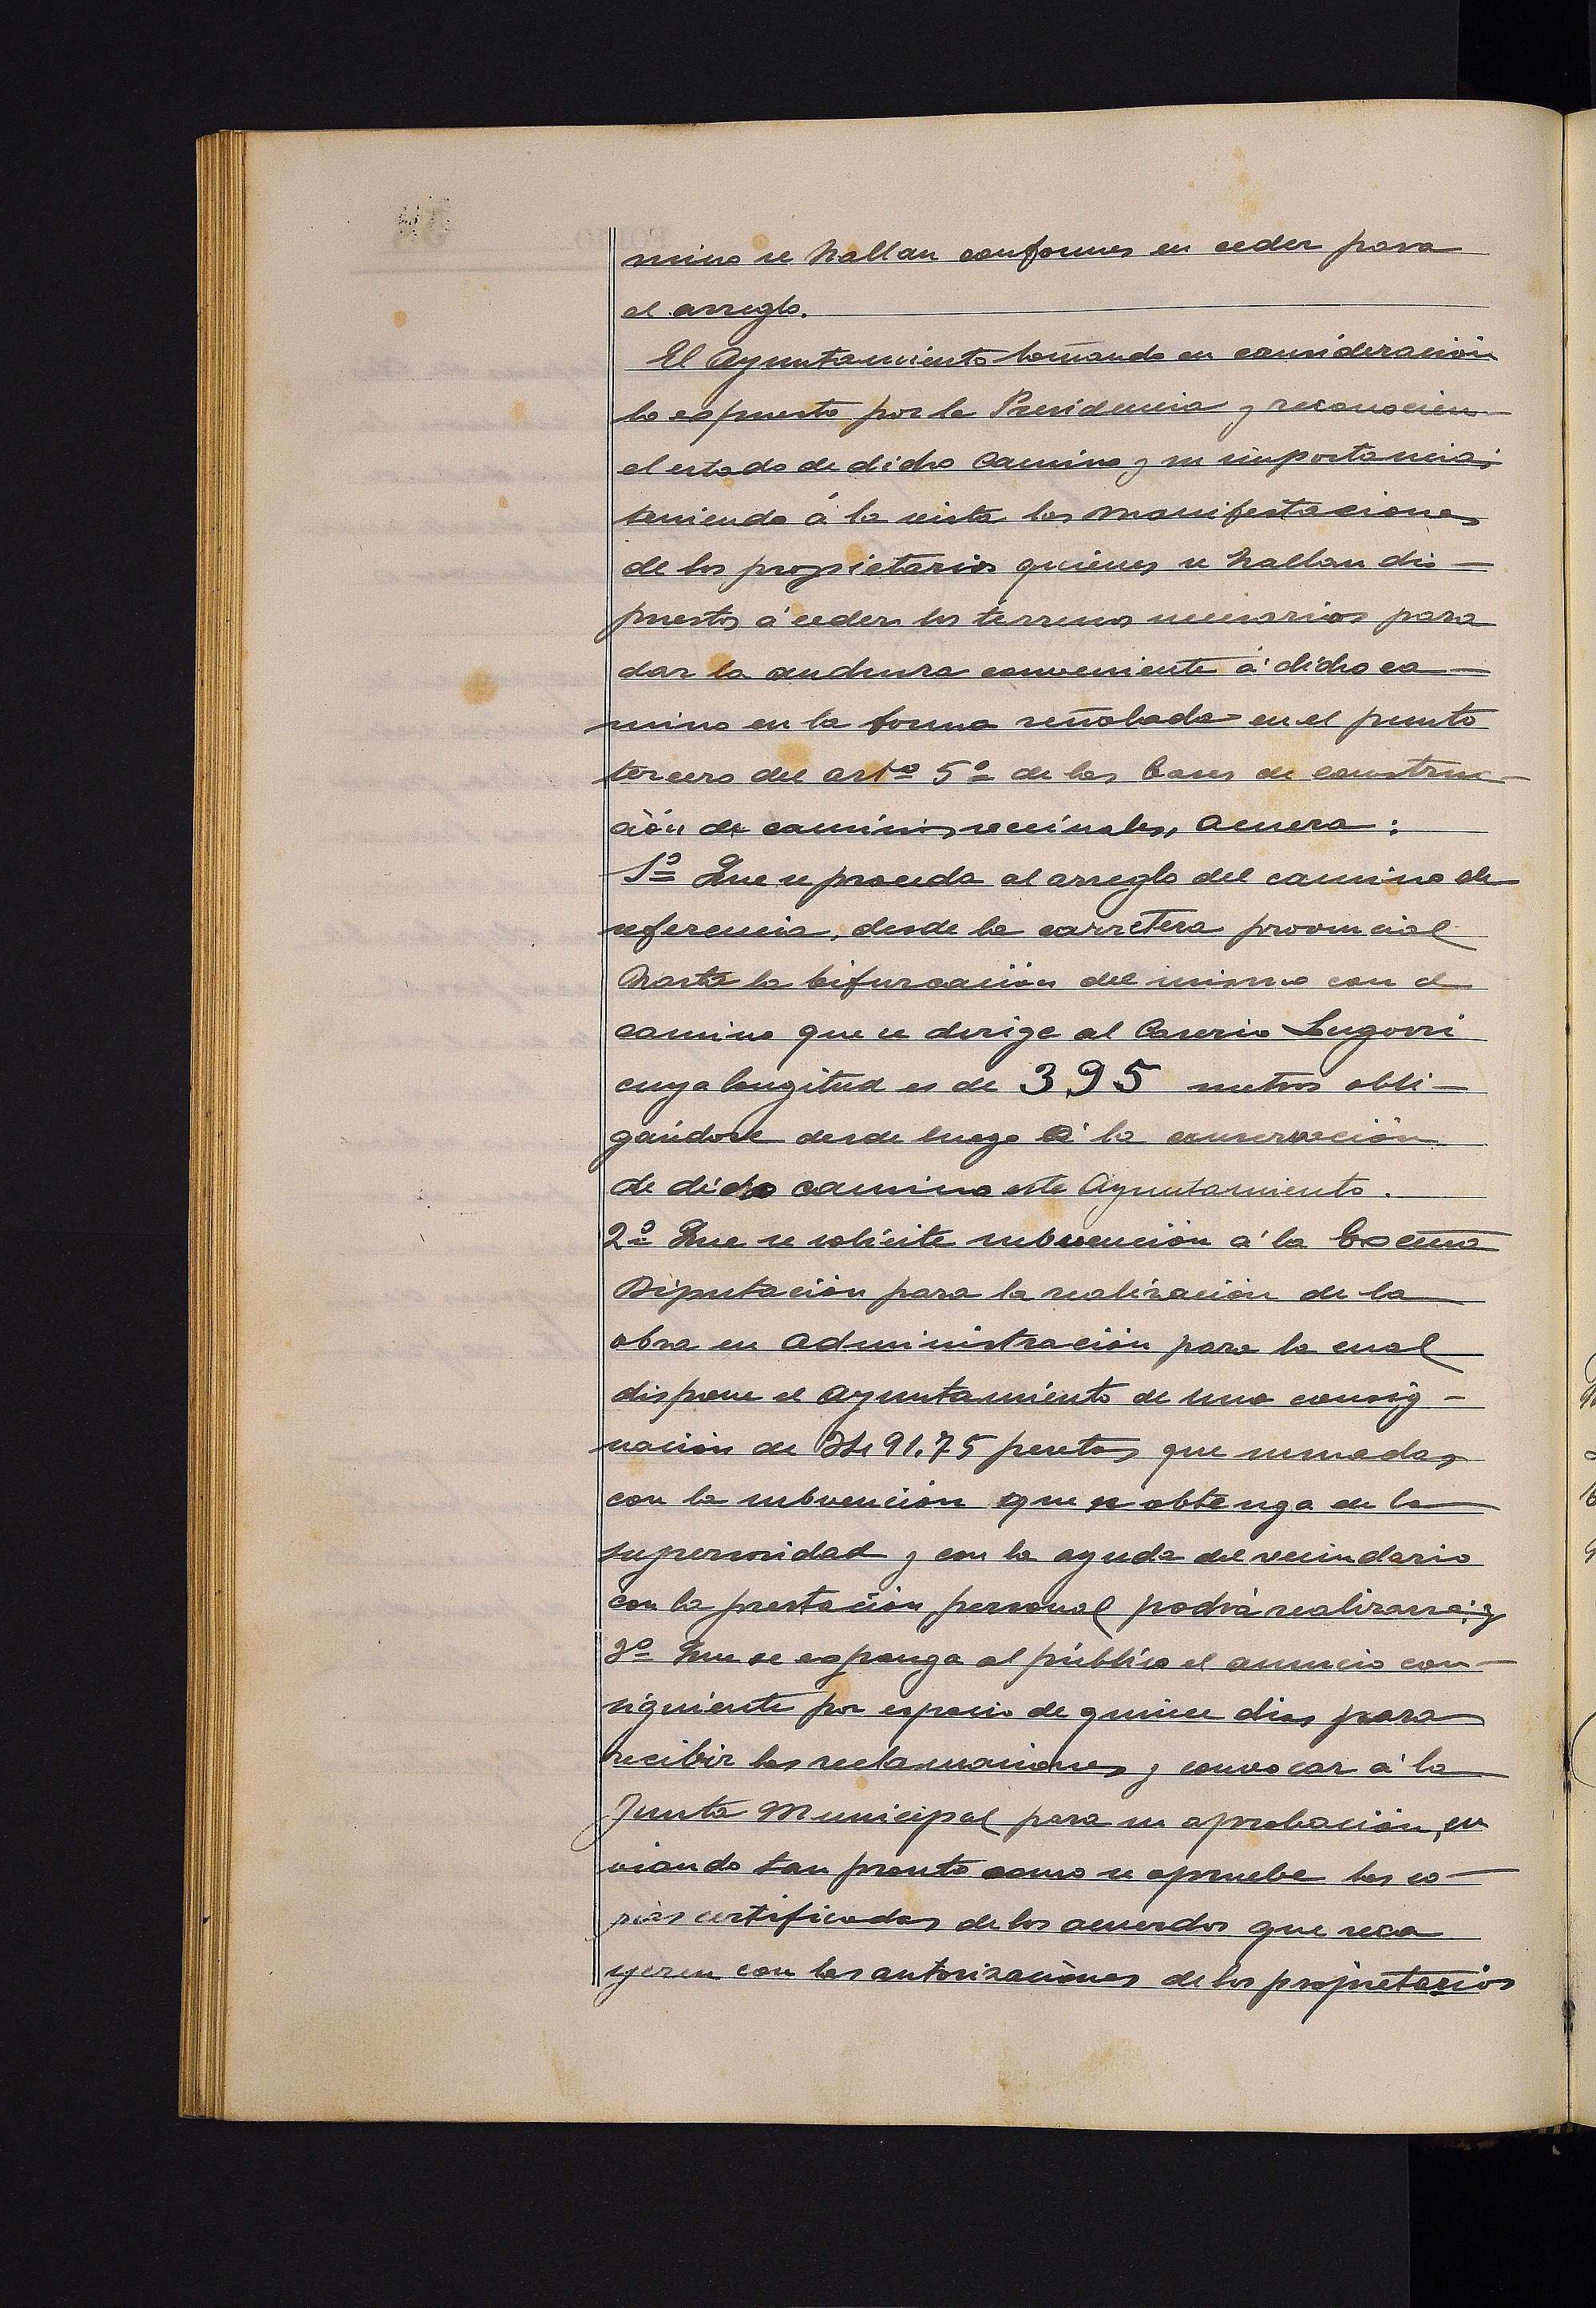 mino se hallan conformes en ceder para
el arreglo.
El Ayuntamiento tomando en consideración
lo espuesto por la Presidencia y reconocien
el estado de dicho camino y su importancia;
teniendo á la vista las manifestaciones
de los propietarios quienes se hallan dis-
puestos á ceder los terrenos necesarios para
dar la anchura conveniente á dicho ca-
mino en la forma señalada en el punto
tercero del artº 5º de las Bases de construc-
ción de caminos vecinales, acuera:
1º Que se proceda al arreglo del camino de
referencia, desde la carretera provincial
hasta la bifurcación del mismo con el
camino que se dirige al Caserio Lugorri
cuya longitud es de 395 metros obli-
gándose desde luego á la conservación
de dicho camino este Ayuntamiento.
2º Que se solicite subvención á la Excma
Diputación para la realización de la
obra en administración para la cual
dispone el Ayuntamiento de una consig-
nación de 91.75 pesetas que sumadas
con la subvención que se obtenga de la
superioridad y con la ayuda del vecindario
con la prestación personal podrá realizarse; y
3º Que se esponga al público el anuncio con-
siguiente por espacio de quince dias para
recibir las reclamaciones y convocar á la
Junta Municipal para su aprobación, en
viando tan pronto como se apruebe las co-
pias certificadas de los acuerdos que reca
yeren con las autorizaciones de los propietarios